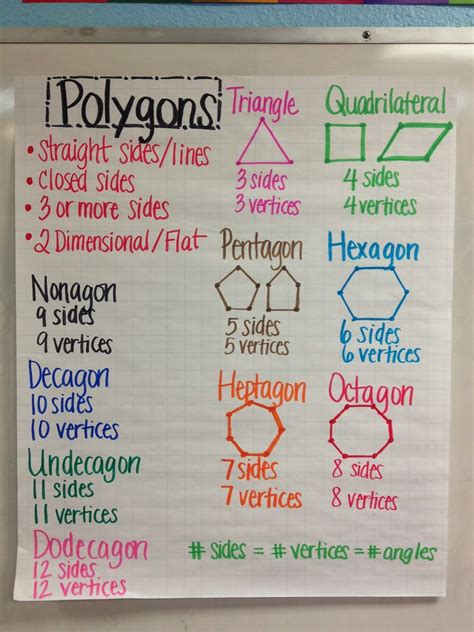 Polygons
• Straight sides/lines
• Closed sides
• 3 or more sides
• 2 Dimensional/Flat
Triangle
3 sides
3 vertices
Quadrilateral
4 sides
4 vertices
Pentagon
5 sides
5 vertices
Hexagon
6 sides
6 vertices
Heptagon
7 sides
7 vertices
Octagon
8 sides
8 vertices
Nonagon
9 sides
9 vertices
Decagon
10 sides
10 vertices
Undecagon
11 sides
11 vertices
Dodecagon
12 sides
12 vertices
# sides = # vertices = # angles